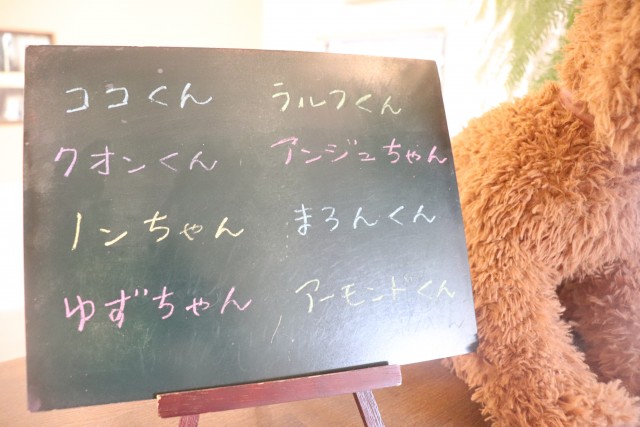 ココくん
ラルフくん
クオンくん
アンジュちゃん
ノンちゃん
まろんくん
ゆずちゃん
アーモンドくん